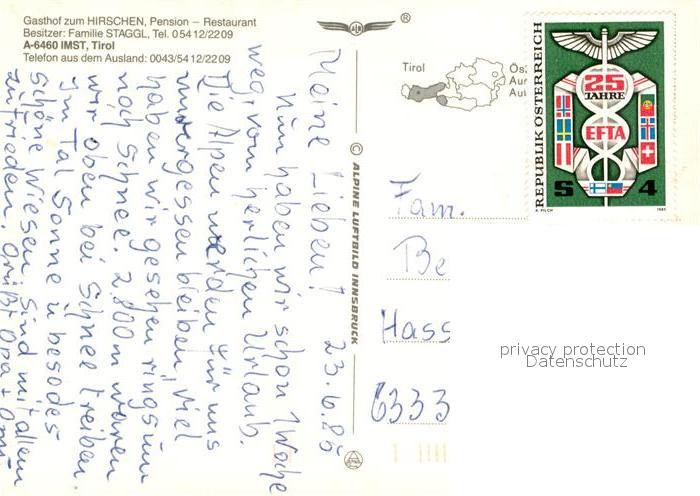 Gasthof zum HIRSCHEN, Pension – Restaurant
Besitzer: Familie STAGGL, Tel. 0 54 12/22 09
A-6460 IMST, Tirol
Telefon aus dem Ausland: 0043/54 12/22 09
Meine Lieben! 23.6.85
Nun haben wir schon 1 Woche
weg, vom herlichen Urlaub.
Die Alpen werden für uns
unvergessen bleiben, viel
haben wir gesehen rings um
noch Schnee. 2.800 m waren
wir oben bei Schnee treiben.
Im Tal Sonne u besodes
Schöne Wiesen. Sind mit allem
zufrieden. Grüßt Opa + Omi
© ALPINE LUFTBILD INNSBRUCK
ALPIN
®
Tirol
Ös
Aur
Aut
REPUBLIK ÖSTERREICH
25
JAHRE
EFTA
S 4
A. PILCH 1985
Fam.
Be
Hass
6333
privacy protection
Datenschutz